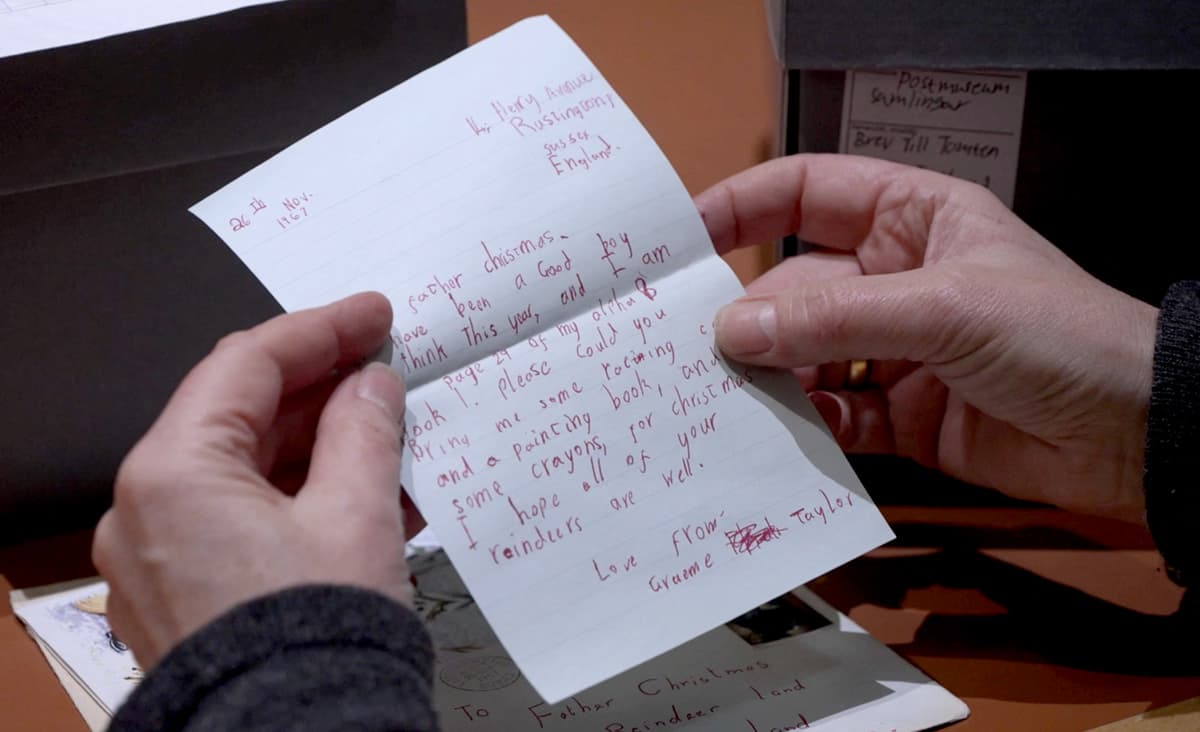 Henry Avenue
Rustington,
Sussex
England.
26 th Nov.
1967
father christmas.
have been a Good boy
think This year, and I am
page 29 of my alpha B
ook 1. please could you
Bring me some racing
and a painting book, and
some crayons, for christmas
I hope all of your
reindeers are well.
Love from-
Graeme Taylor
To Father Christmas
Reindeer Land
Land
Postmuseum
Samlingar
Brev Till Tomten